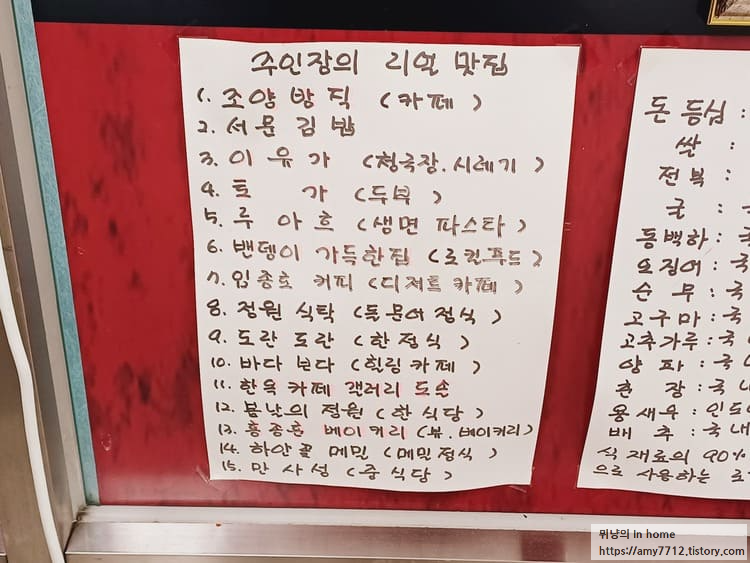 주인장의 리얼 맛집
1. 조양방직 (카페)
2. 서문김밥
3. 이유가 (청국장.시레기)
4. 토가 (두부)
5. 루아흐 (생면 파스타)
6. 밴뎅이 가득한집 (로컬푸드)
7. 임종호 커피 (디저트 카페)
8. 정원 식탁 (돌문어정식)
9. 도란 도란 (한정식)
10. 바다 보다 (힐링카페)
11. 한옥 카페 갤러리 도솔
12. 봄난의 정원 (한식당)
13. 홍종흔 베이커리 (뷰.베이커리)
14. 하얀꽃 메밀 (메밀정식)
15. 만사성 (중식당)
돈 등심 :
쌀 :
전복 :
굴 :
동백하 : 국
오징어 : 국
순무 : 국
고구마 : 국
고추가루 : 국
양파 : 국
춘장 : 국내
용새우 : 인도
배추 : 국내
식재료의 90%
으로 사용하는
뭐냥의 in home
https://amy7712.tistory.com